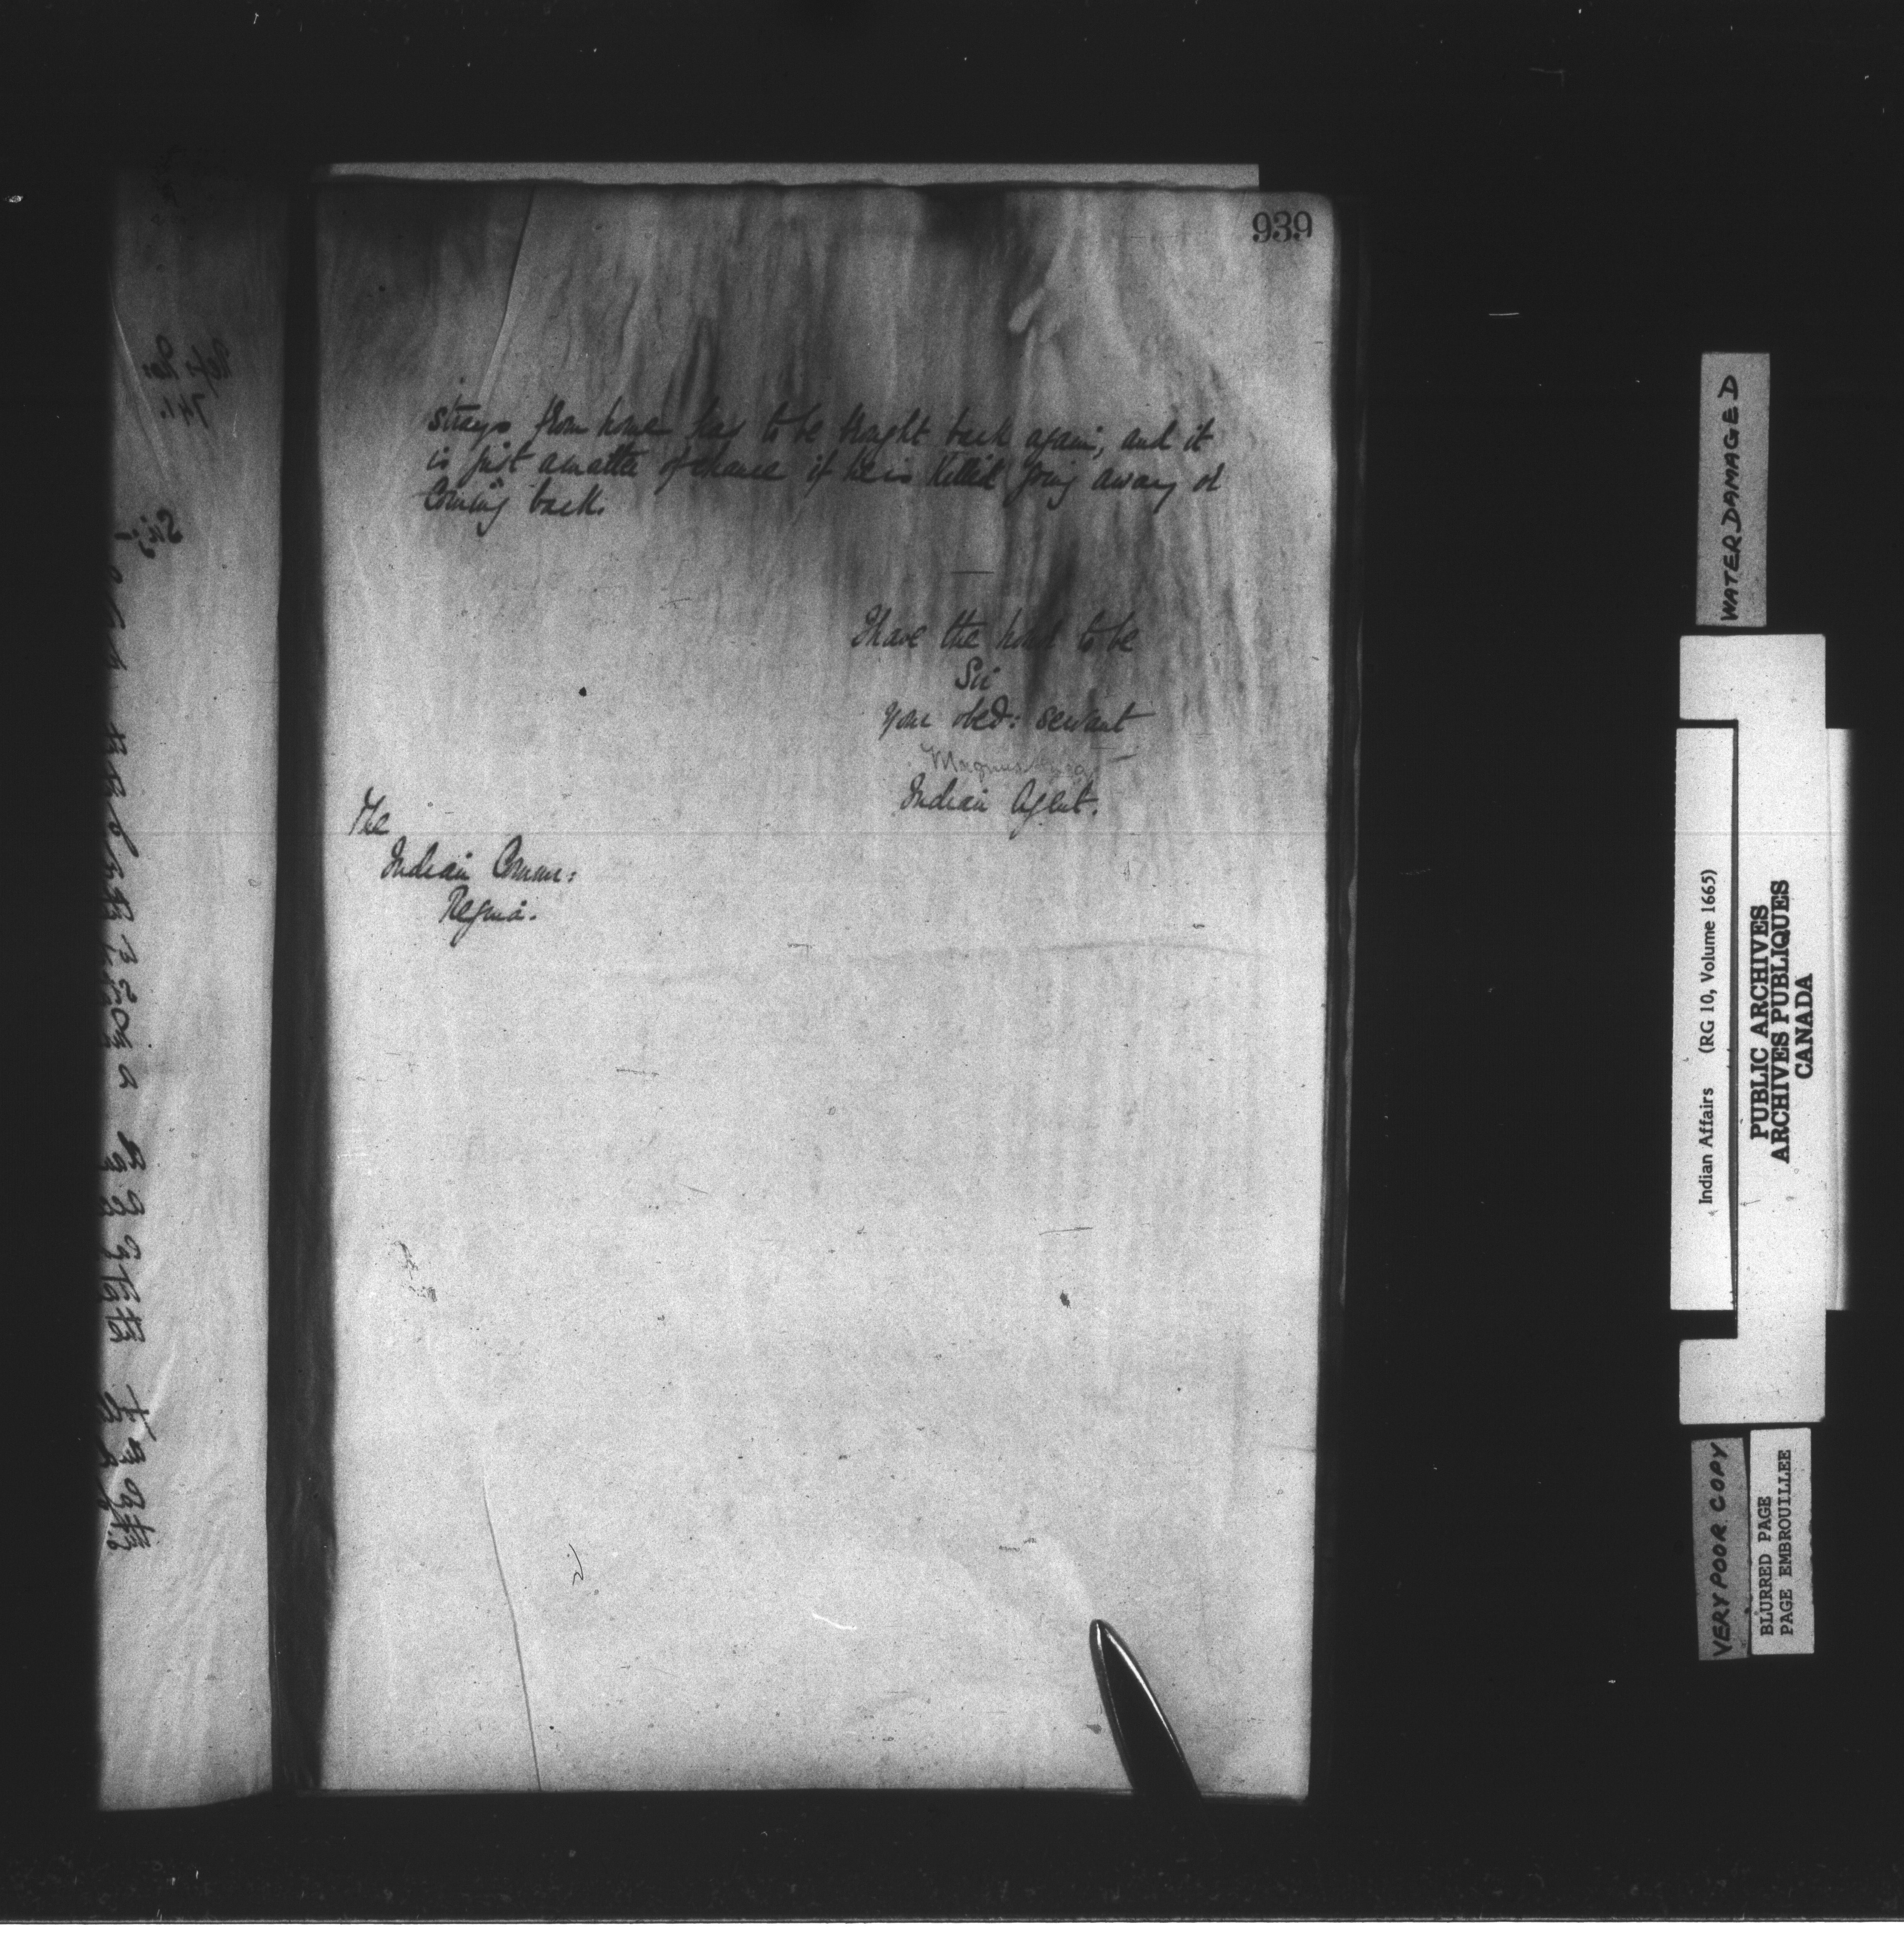 939
strays from home has to be brought back again, and it
is just a matter of chance if he is killed going away or
coming back.
I have the honor to be
Sir
your obed: servant
Magnus
Indian Agent.
The
Indian Comm:
Regina.
Refs Nos
741.
Sir:-
WATER DAMAGED
Indian Affairs (RG 10, Volume 1665)
PUBLIC ARCHIVES
ARCHIVES PUBLIQUES
CANADA
VERY POOR COPY
BLURRED PAGE
PAGE EMBROUILLEE